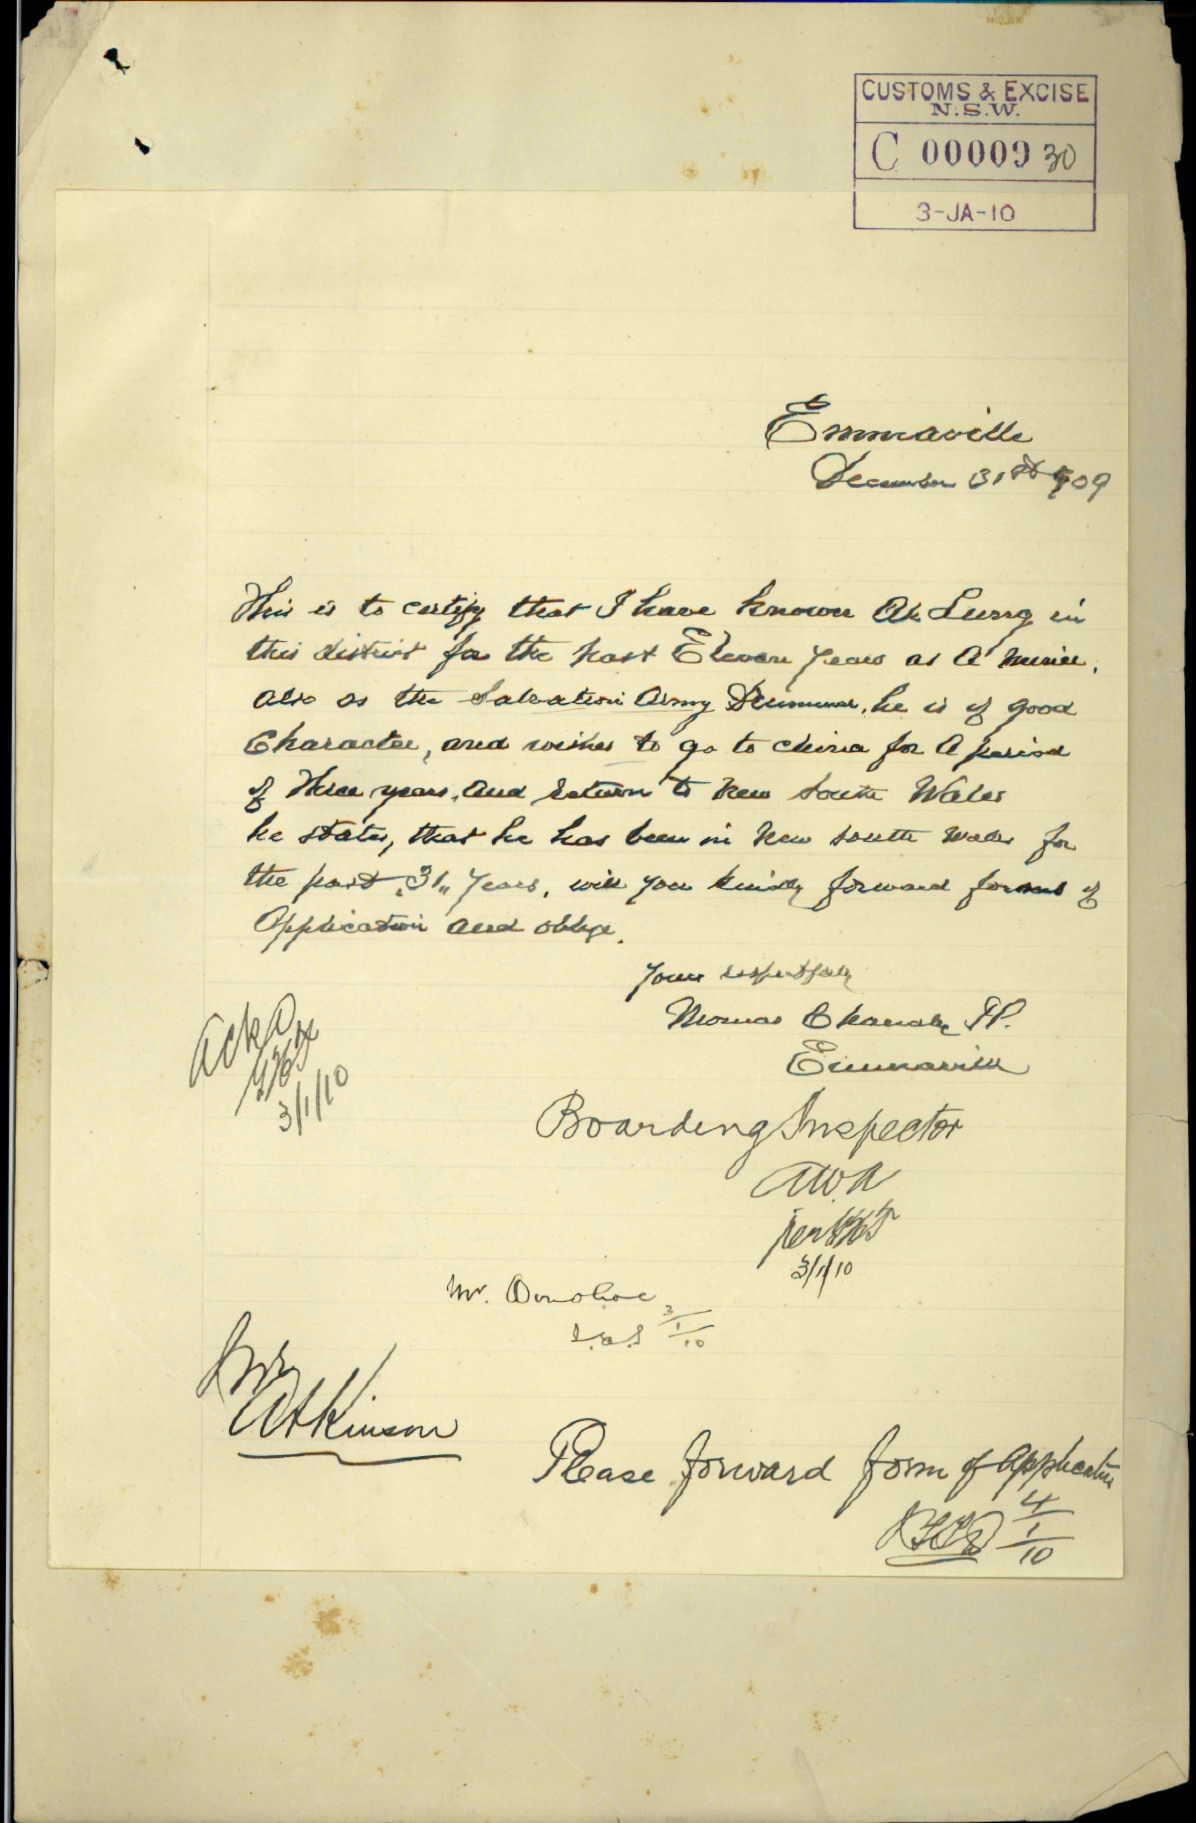 CUSTOMS & EXCISE
N.S.W.
C 00009 30
3-JA-10
Emmaville
December 31st 909
This is to certify that I have known Ah Lung in
this district for the past Eleven years as a miner,
also as the Salvation Army Drummer, he is of good
Character, and wishes to go to china for a period
of Three years, and return to New South Wales
he states, that he has been in New South Wales for
the past "31" years, will you kindly forward forms of
Application and oblige.
Yours respectfully
Thomas JP.
Emmaville
Ackd
3/1/10
Boarding Inspector
AWA
per
3/1/10
Mr. Donohoe
3/1/10
Mr
Atkinson
Please forward form of Application
4/1/10